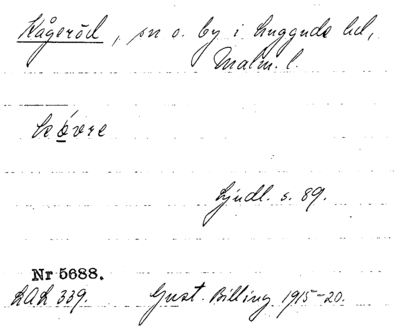 Kågeröd, sn o. by i Luggude hd,
Malm. l.
kǻvre
Ljudl. s. 89.
Nr 5688.
LAL 339. Gust. Billing 1915-20.